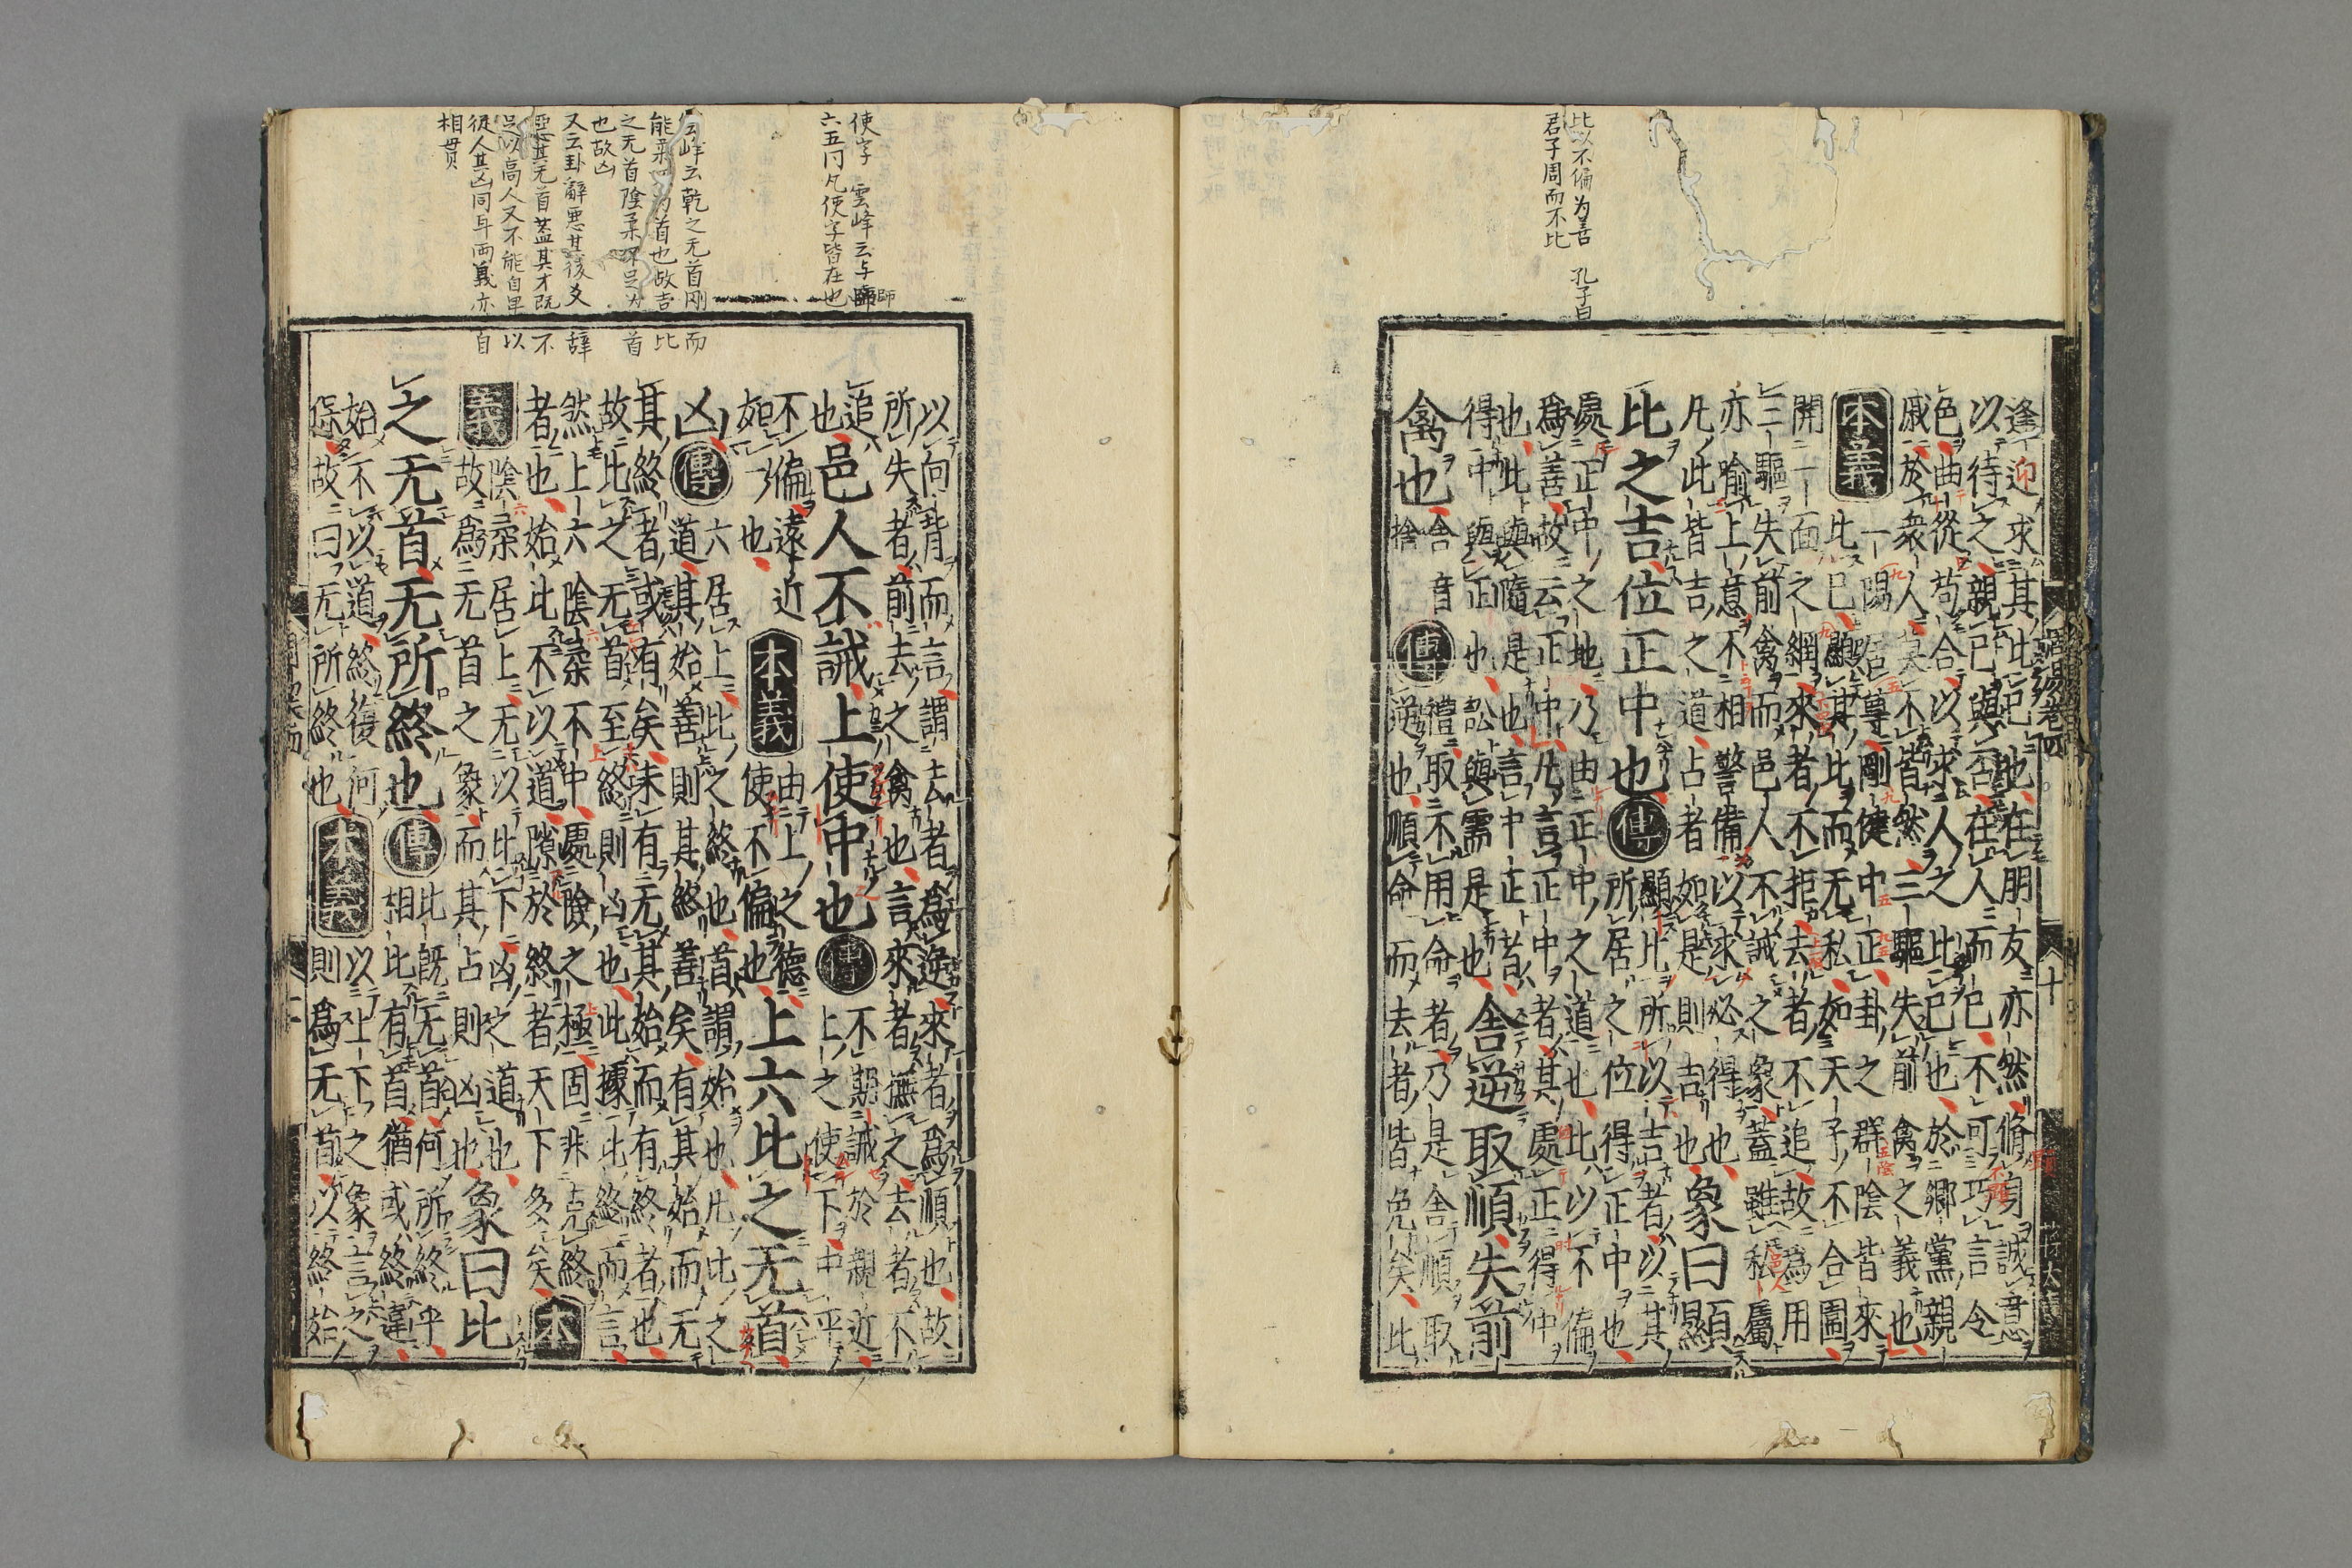 比以不偏为善　孔子曰
君子周而不比
逢迎求其比巳也在朋友亦然脩身誠意
以待之親巳與否在人而巳不可巧言令
色曲從苟合以求人之比巳也於鄉黨親
戚於衆人莫不皆然三驅失前禽之義也
本義 一陽居尊剛健中正卦之群陰皆來
比巳顯其比而无私如天子不合圍
開一面之網來者不拒去者不追故為用
三驅失前禽而邑人不誡之象蓋雖私屬
亦喻上意不相警備以求必得也
凡此皆吉之道占者如是則吉也 象曰顯
比之吉位正中也 傳 顯比所以吉者以其
所居之位得正中也
處正中之地乃由正中之道也比以不偏
為善故云正中凡言正中者其處正得中
也比與隨是也言中正者
得中與正也訟與需是也 舍逆取順失前
禽也 舍音捨 傳 禮取不用命者乃是舍順取
逆也順命而去者皆免矣比
周易卷四
十
使字　雲峰云与師
六五同凡使字皆在也
雲峰云乾之无首刚而
能柔 为首也故吉比
之无首陰柔 足为首
也故凶
又云卦辭惡其後爻辞
惡其无首蓋其才既不
足以高人又不能自卑以
從人其凶同耳兩義亦自
相貫
以向背而言謂去者為逆來者為順也故
所失者前去之禽也言來者撫之去者不
追也 邑人不誡上使中也 傳 不期誡於親近
上之使下中平
不偏遠近
如一也 本義 由上之德
使不偏也 上六比之无首
凶 傳 六居上比之終也首謂始也凡比之
道其始善則其終善矣有其始而无
其終者或有矣未有无其始而有終者也
故比之无首至終則凶也此據比終而言
然上六陰柔不中處險之極固非克終
者也始比不以道隙於終者天下多矣 本
義 陰柔居上无以比下凶之道也
故為无首之象而其占則凶也 象曰比
之无首无所終也 傳 比既无首何所終乎
相比有首猶或終違
始不以道終復何
保故曰无所終也 本義 以上下之象言之
則為无首以終始